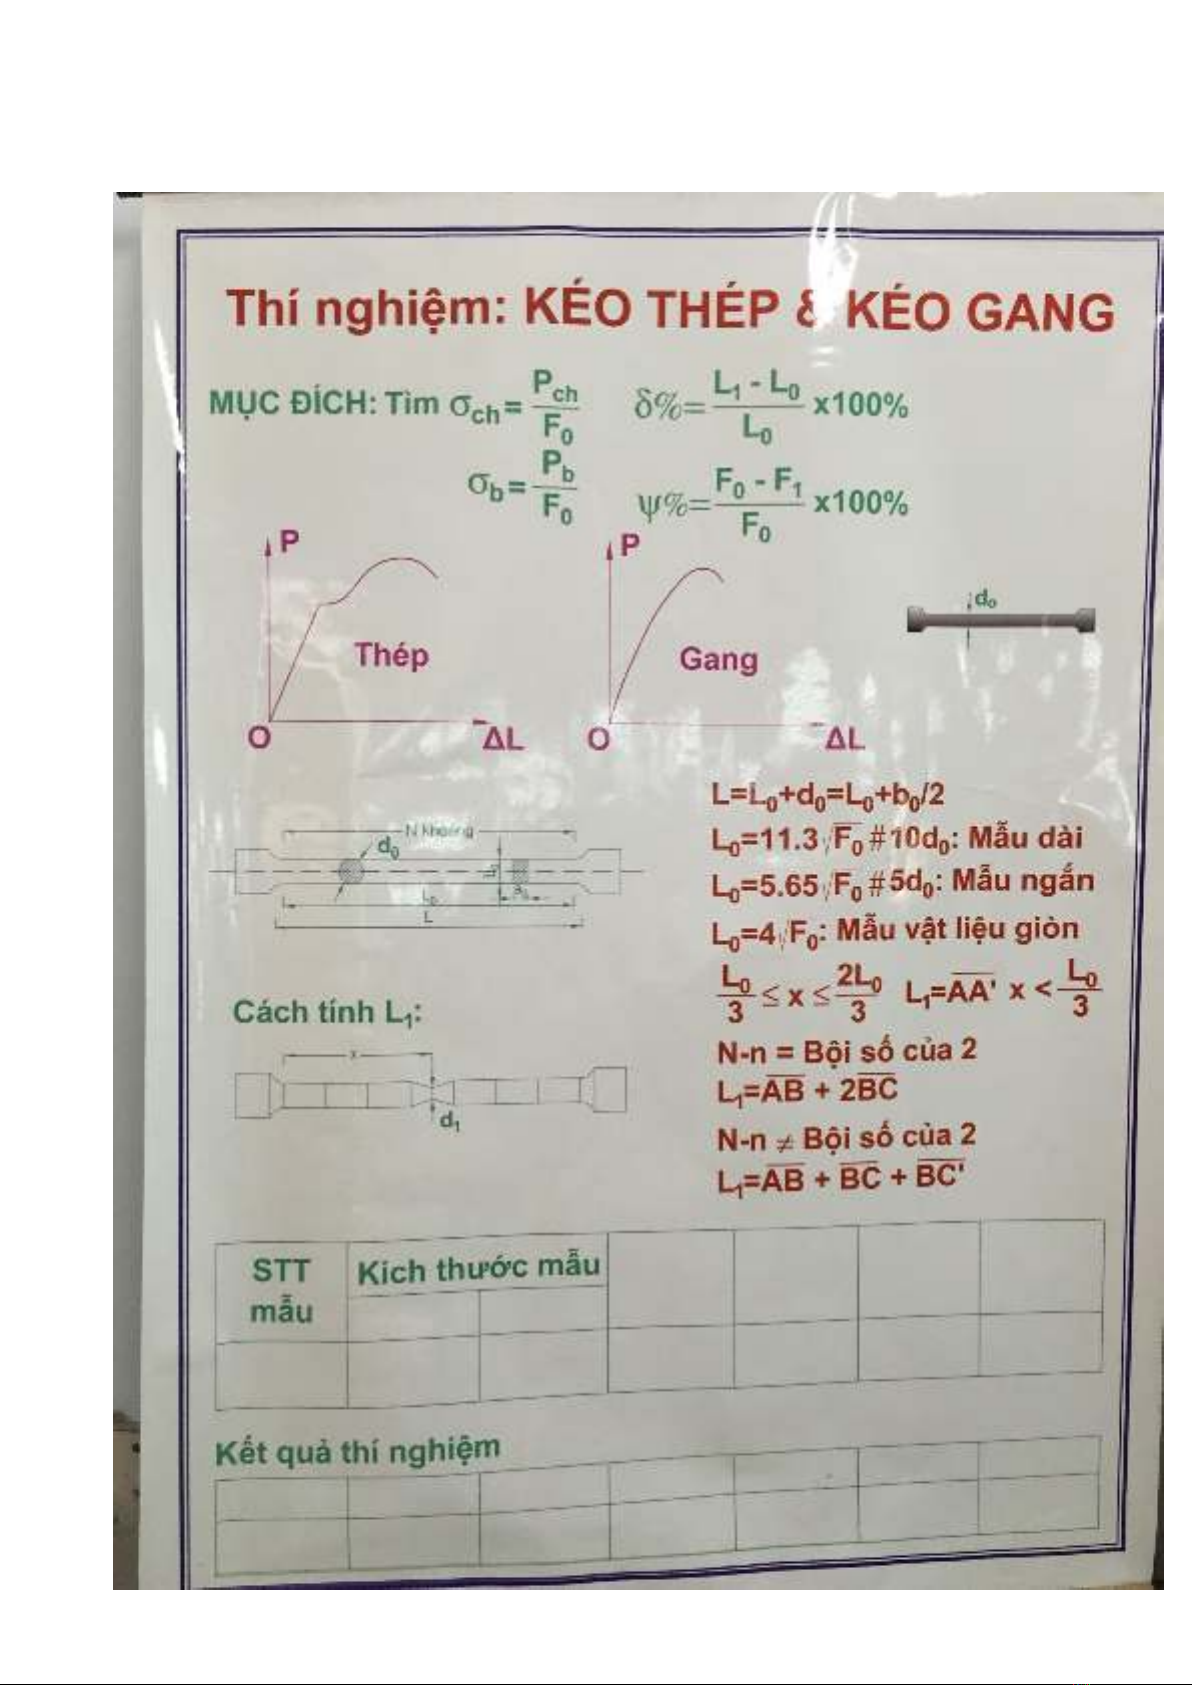 Thí nghiệm: KÉO THÉP & KÉO GANG
MỤC ĐÍCH: Tìm σch = Pch / F0
δ% = (L1 - L0) / L0 x100%
σb = Pb / F0
ψ% = (F0 - F1) / F0 x100%
P
P
d0
Thép
Gang
O
ΔL
O
ΔL
L=L0+d0=L0+b0/2
N khoảng
d0
L0=11.3√F0 # 10d0: Mẫu dài
L0=5.65√F0 # 5d0: Mẫu ngắn
L0
L
L0=4√F0: Mẫu vật liệu giòn
L0/3 ≤ x ≤ 2L0/3 L1=AA' x < L0/3
Cách tính L1:
N-n = Bội số của 2
x
L1=AB + 2BC
d1
N-n ≠ Bội số của 2
L1=AB + BC + BC'
STT mẫu
Kích thước mẫu
Kết quả thí nghiệm